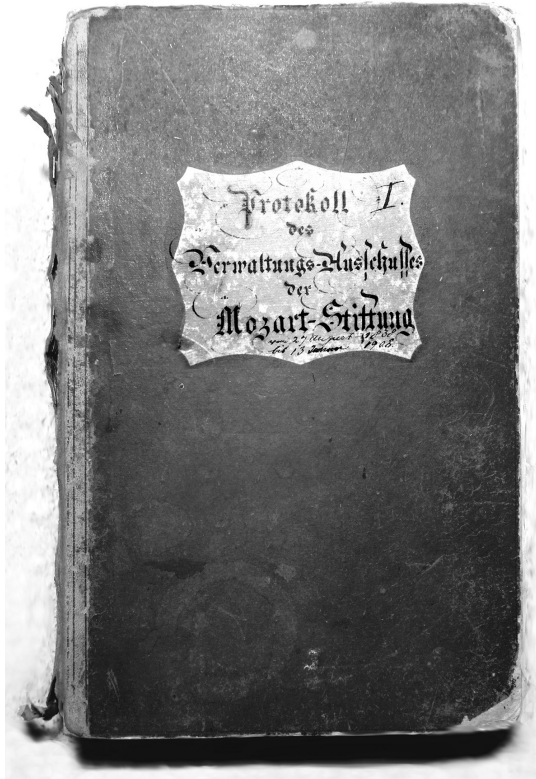 Protokoll I.
des
Verwaltungs-Ausschusses
der
Mozart-Stiftung
vom 27 August 1838
bis 13 Januar 1908